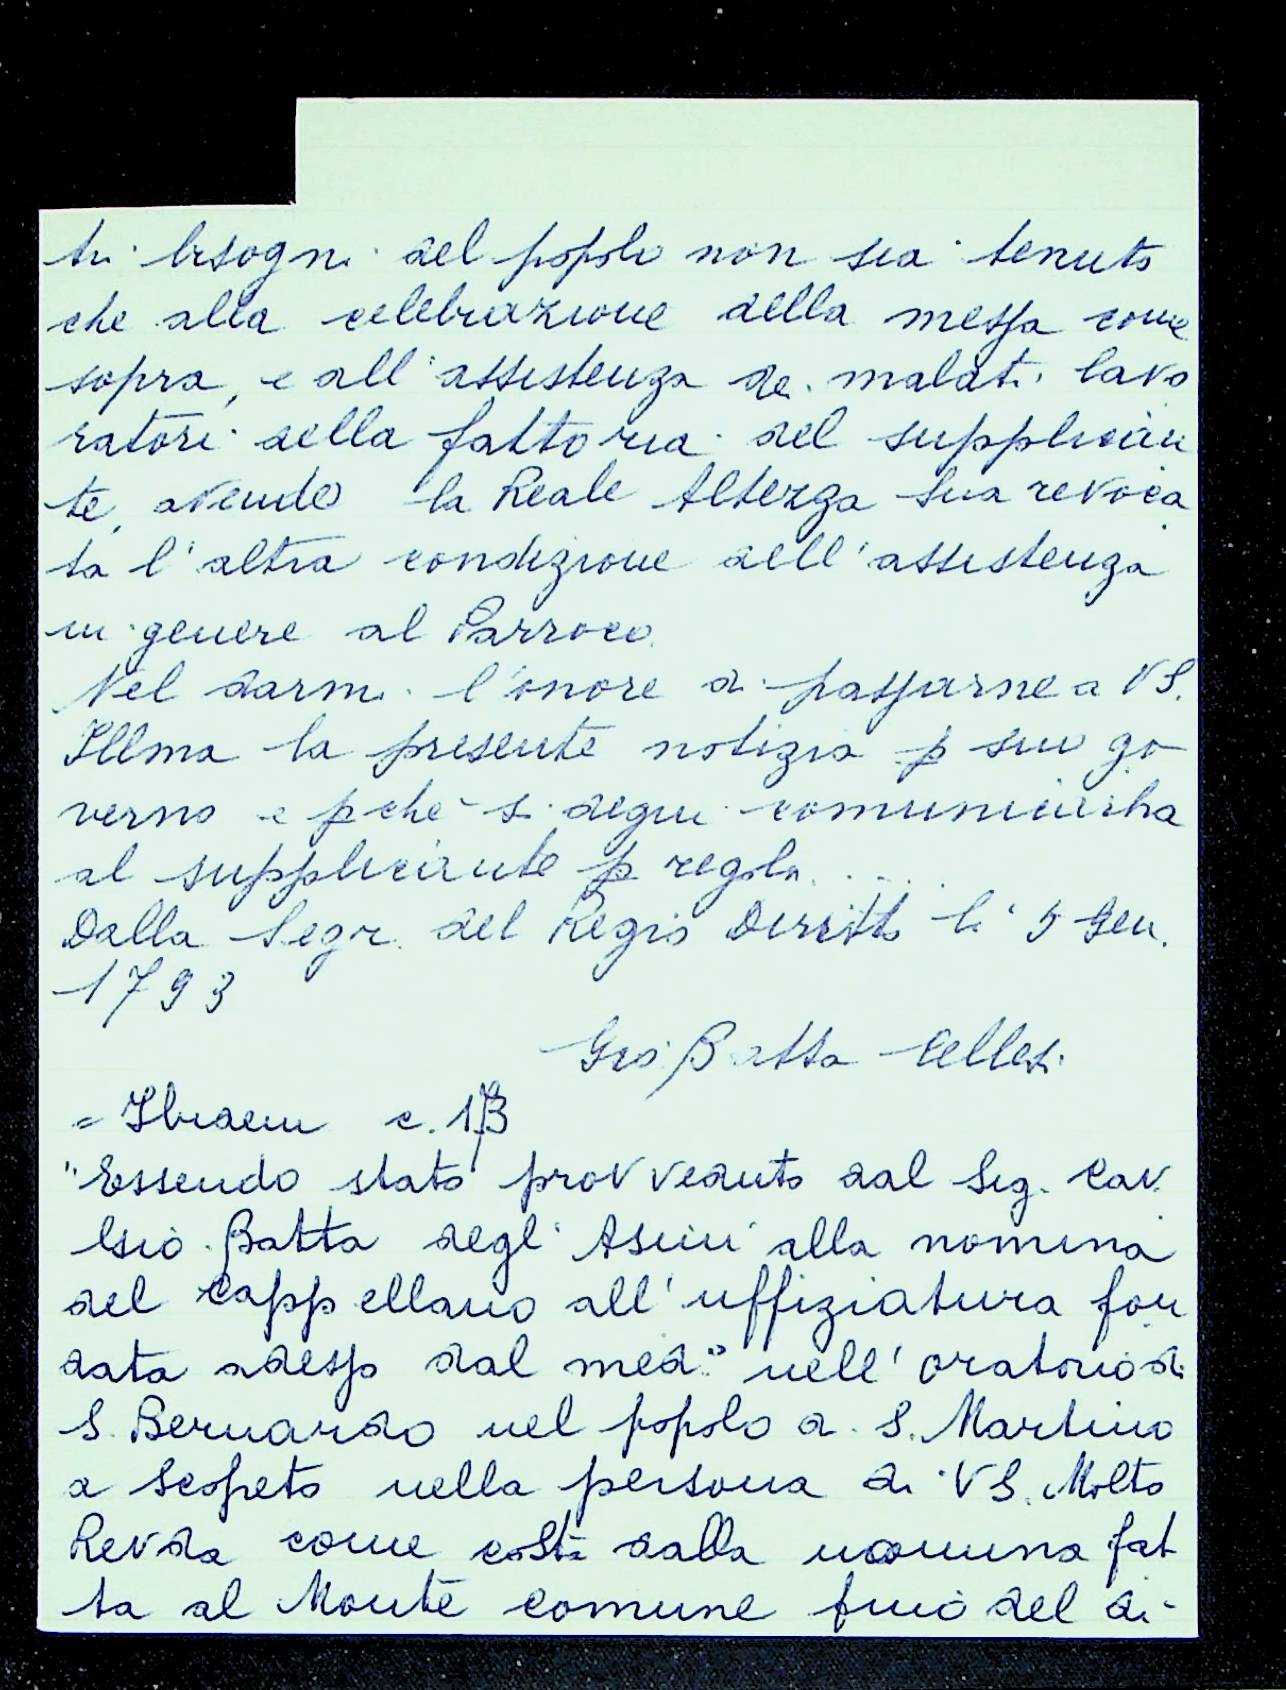 ti bisogni del popolo non sia tenuto
che alla celebrazione della messa come
sopra, e all'assistenza de malati lavo
ratori della fattoria del supplican
te, avendo la Reale Altezza Sua revoca
ta l'altra condizione dell'assistenza
in genere al Parroco.
Nel darmi l'onore di passarne a VS.
Illma la presente notizia p suo go
verno e pchè si degni comunicarla
al supplicante p regola.....
Dalla Segr. del Regio Diritto li 5 Gen.
1793
Gio Batta Cellesi
= Ibidem c. 173
"Essendo stato provveduto dal Sig. Cav.
Gio. Batta degli Asini alla nomina
del Cappellano all'uffiziatura fon
data adesso dal med.° nell'oratorio di
S. Bernardo nel popolo di S. Martino
a Scopeto nella persona di VS. Molto
Revda come costa dalla nomina fat
ta al Monte Comune fino del dì-